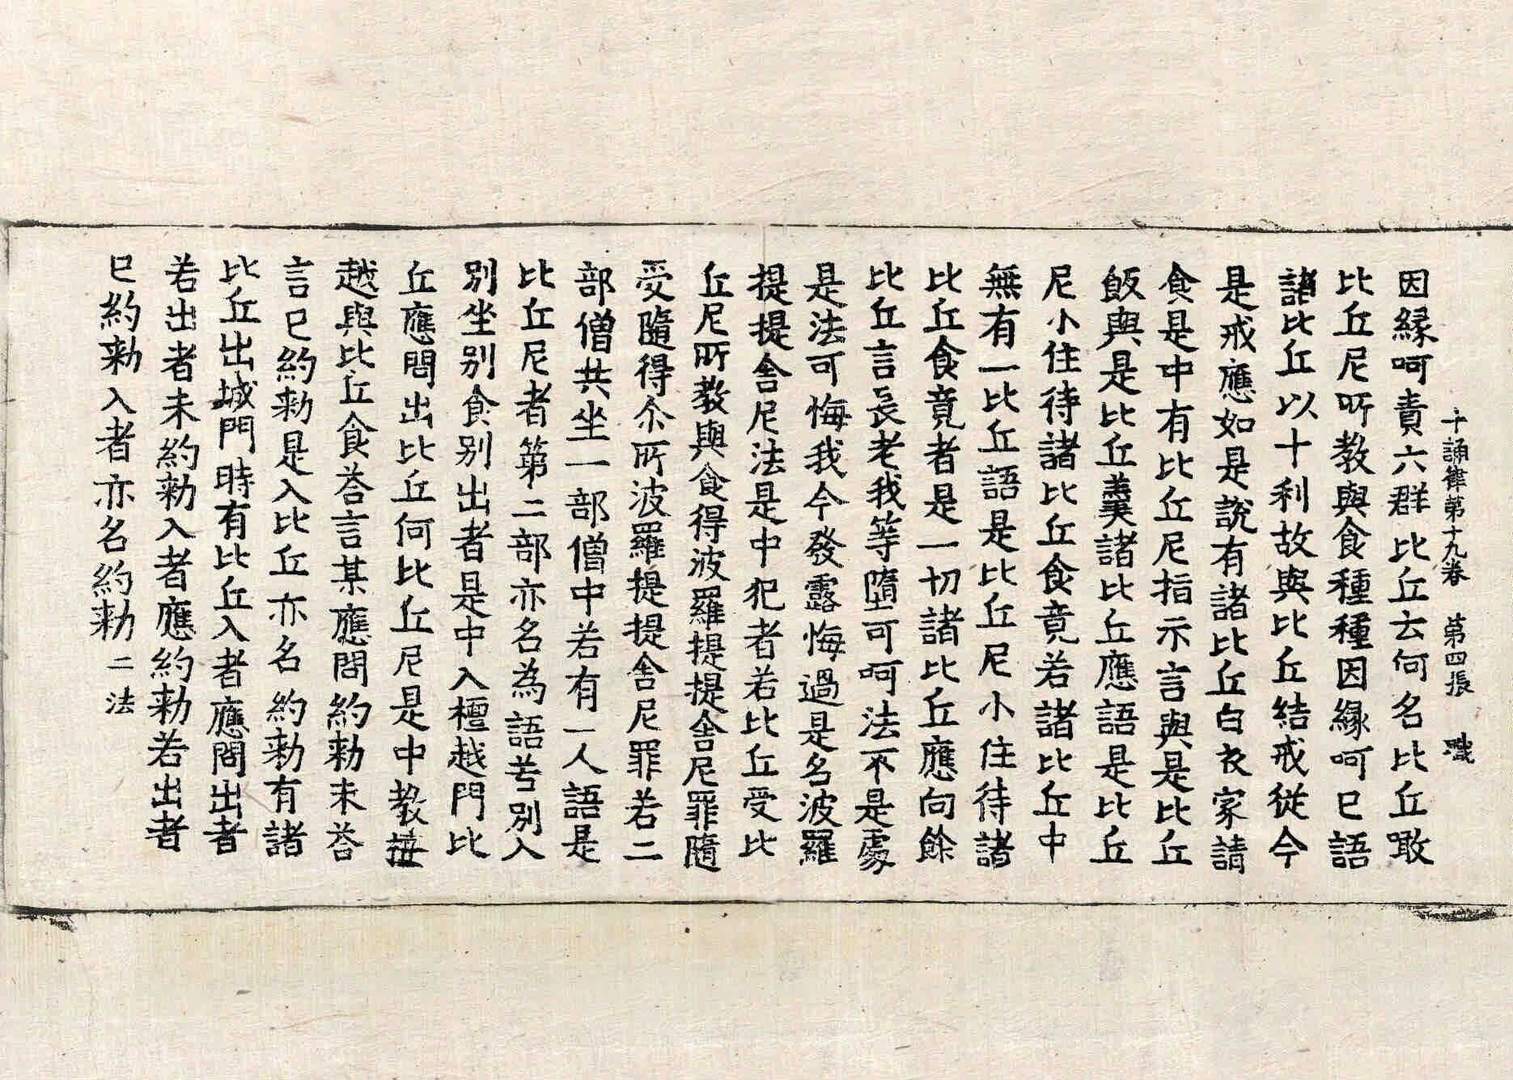 十誦律第十九卷 第四張 職
因緣呵責六群比丘云何名比丘噉
比丘尼所教與食種種因緣呵已語
諸比丘以十利故與比丘結戒從今
是戒應如是說有諸比丘白衣家請
食是中有比丘尼指示言與是比丘
飯與是比丘羹諸比丘應語是比丘
尼小住待諸比丘食竟若諸比丘中
無有一比丘語是比丘尼小住待諸
比丘食竟者是一切諸比丘應向餘
比丘言長老我等墮可呵法不是處
是法可悔我今發露悔過是名波羅
提提舍尼法是中犯者若比丘受比
丘尼所教與食得波羅提提舍尼罪隨
受隨得尒所波羅提提舍尼罪若二
部僧共坐一部僧中若有一人語是
比丘尼者第二部亦名為語若別入
別坐別食別出者是中入檀越門比
丘應問出比丘何比丘尼是中教檀
越與比丘食荅言某應問約勑未荅
言已約勑是入比丘亦名約勑有諸
比丘出城門時有比丘入者應問出者
若出者未約勑入者應約勑若出者
已約勑入者亦名約勑 二法